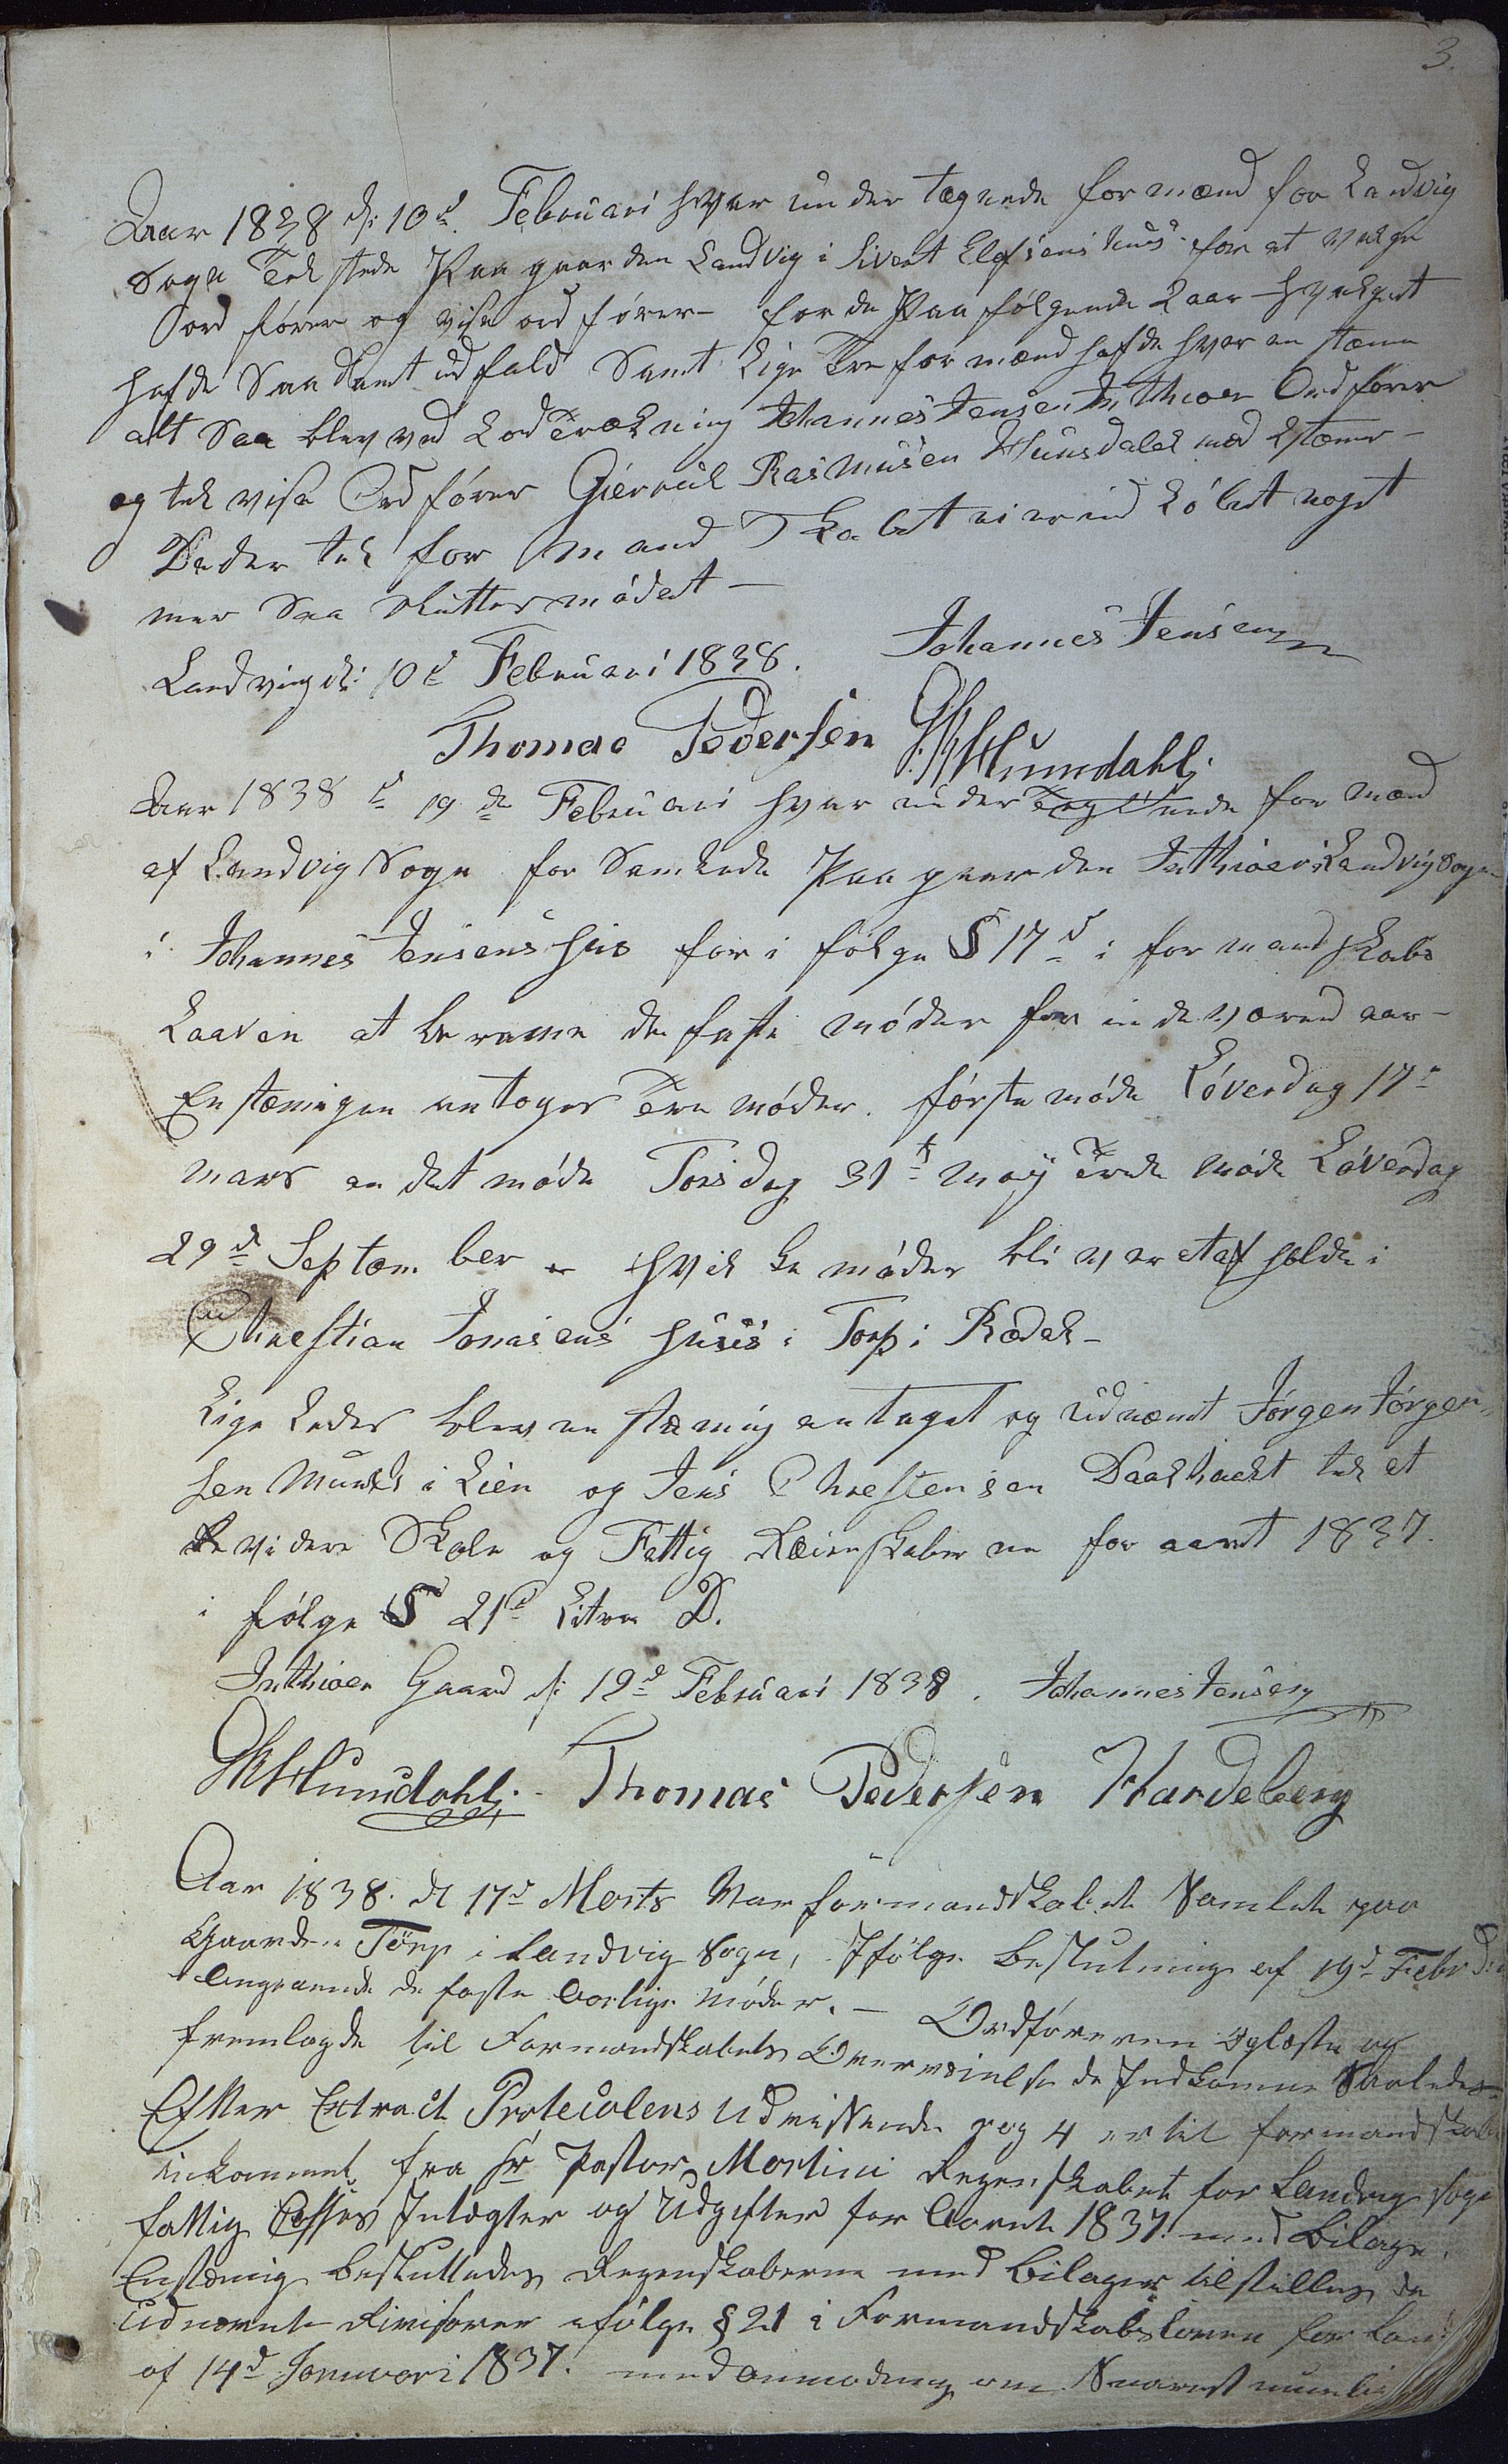 3.
Aar 1838 d: 10d. Februari hvar under tegnede formænd for Landvig
Sogn Tel stede Paa gaarden Landvig i Sivert Elefsens huus for at velge
ord fører og vise ord fører - for de Paa følgende 2 aar - hvelget
hafde Saadant udfald Samt Lige Tre formænd hafde hver en stæme
alt Saa blev ved Lod Trækning Johannes Jensen Inthioer Ordfører
og tel vise Ordfører Gierruel Rasmusen Hunsdalel med 2 stæmer -
Da der tel for mand Skabet ei er ind Købet noget
mer Saa sluttes mødet -
Landvig d: 10d Februari 1838. Johannes Jensen
Thomas Pedersen GRHunsdahl.
Aar 1838 d 19de Februari hvar under Tegnede for mænd
af Landvig Sogn for Samlede Paa gaarden Inthioer i Landvig Sogn
i Johannes Jensens hus for i følge § 17d i for mand skabs
Laaven at berame de faste møder for inde værend aar -
Enstæmigen antoges Tre møder. første møde Løverdag 17d
mars andet møde Torsdag 31t May Trede møde Løverdag
29d Septæmber - hvilke møder bliver at af holde i
Christian Jonasens huus i Torp i Rædel -
Lige ledes blev en stæmig antaget og udnæmt Jørgen Jørgen-
sen Munk i Lien og Jens Chrestensen tel at
Revidere Skole og Fattig Ræienskaberne for aaret 1837.
i følge § 21d Litra D.
Inthioer Gaard d: 19d Februari 1838. Johannes Jensen
GRHunsdahl. Thomas Pedersen Hardeberg
Aar 1838. d 17d Marts Var formandskabet Samlet paa
Gaarden Torp i Landvig Sogn, Ifølge Beslutning af 19d Febr
Angaaende de faste Aarlige Møder. - Ordføreren oplæste og
fremlagde til Formandskabets Overveielse de Indkomne Saaledes
Efter Extract Protecolens Udvissende pag 4 er til formandskabet
inkommet fra Hr Pastor Martini Regenskabet for Landvig Sogn
fattig Casses Intægter og Udgifter for Aaret 1837. med Bilage.
Enstæmig besluttedes Regenskaberne med Bilager tilstilles de
Udnævnte Revisorer ifølge § 21 i Formandskabsloven for Land
af 14d Januari 1837. med anmodning om Snarest mueligt